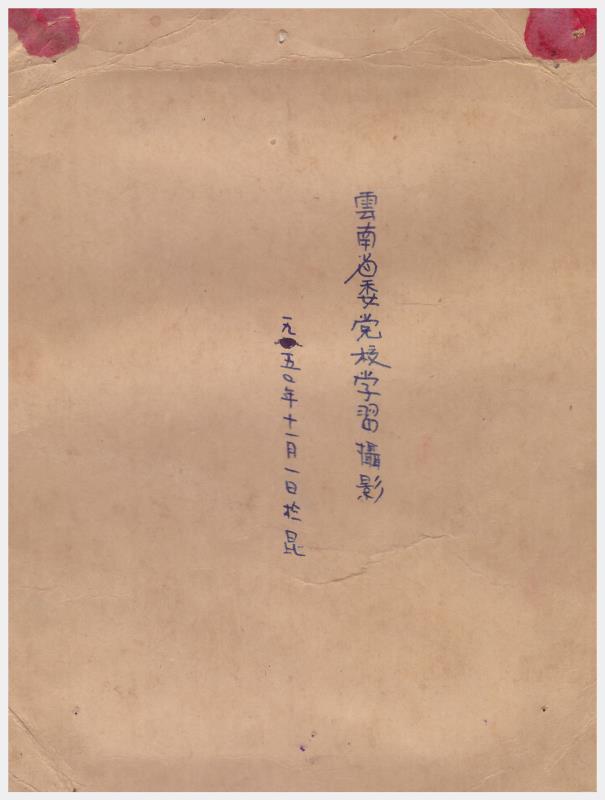 雲南省委党校学習攝影
一九五〇年十一月一日於昆